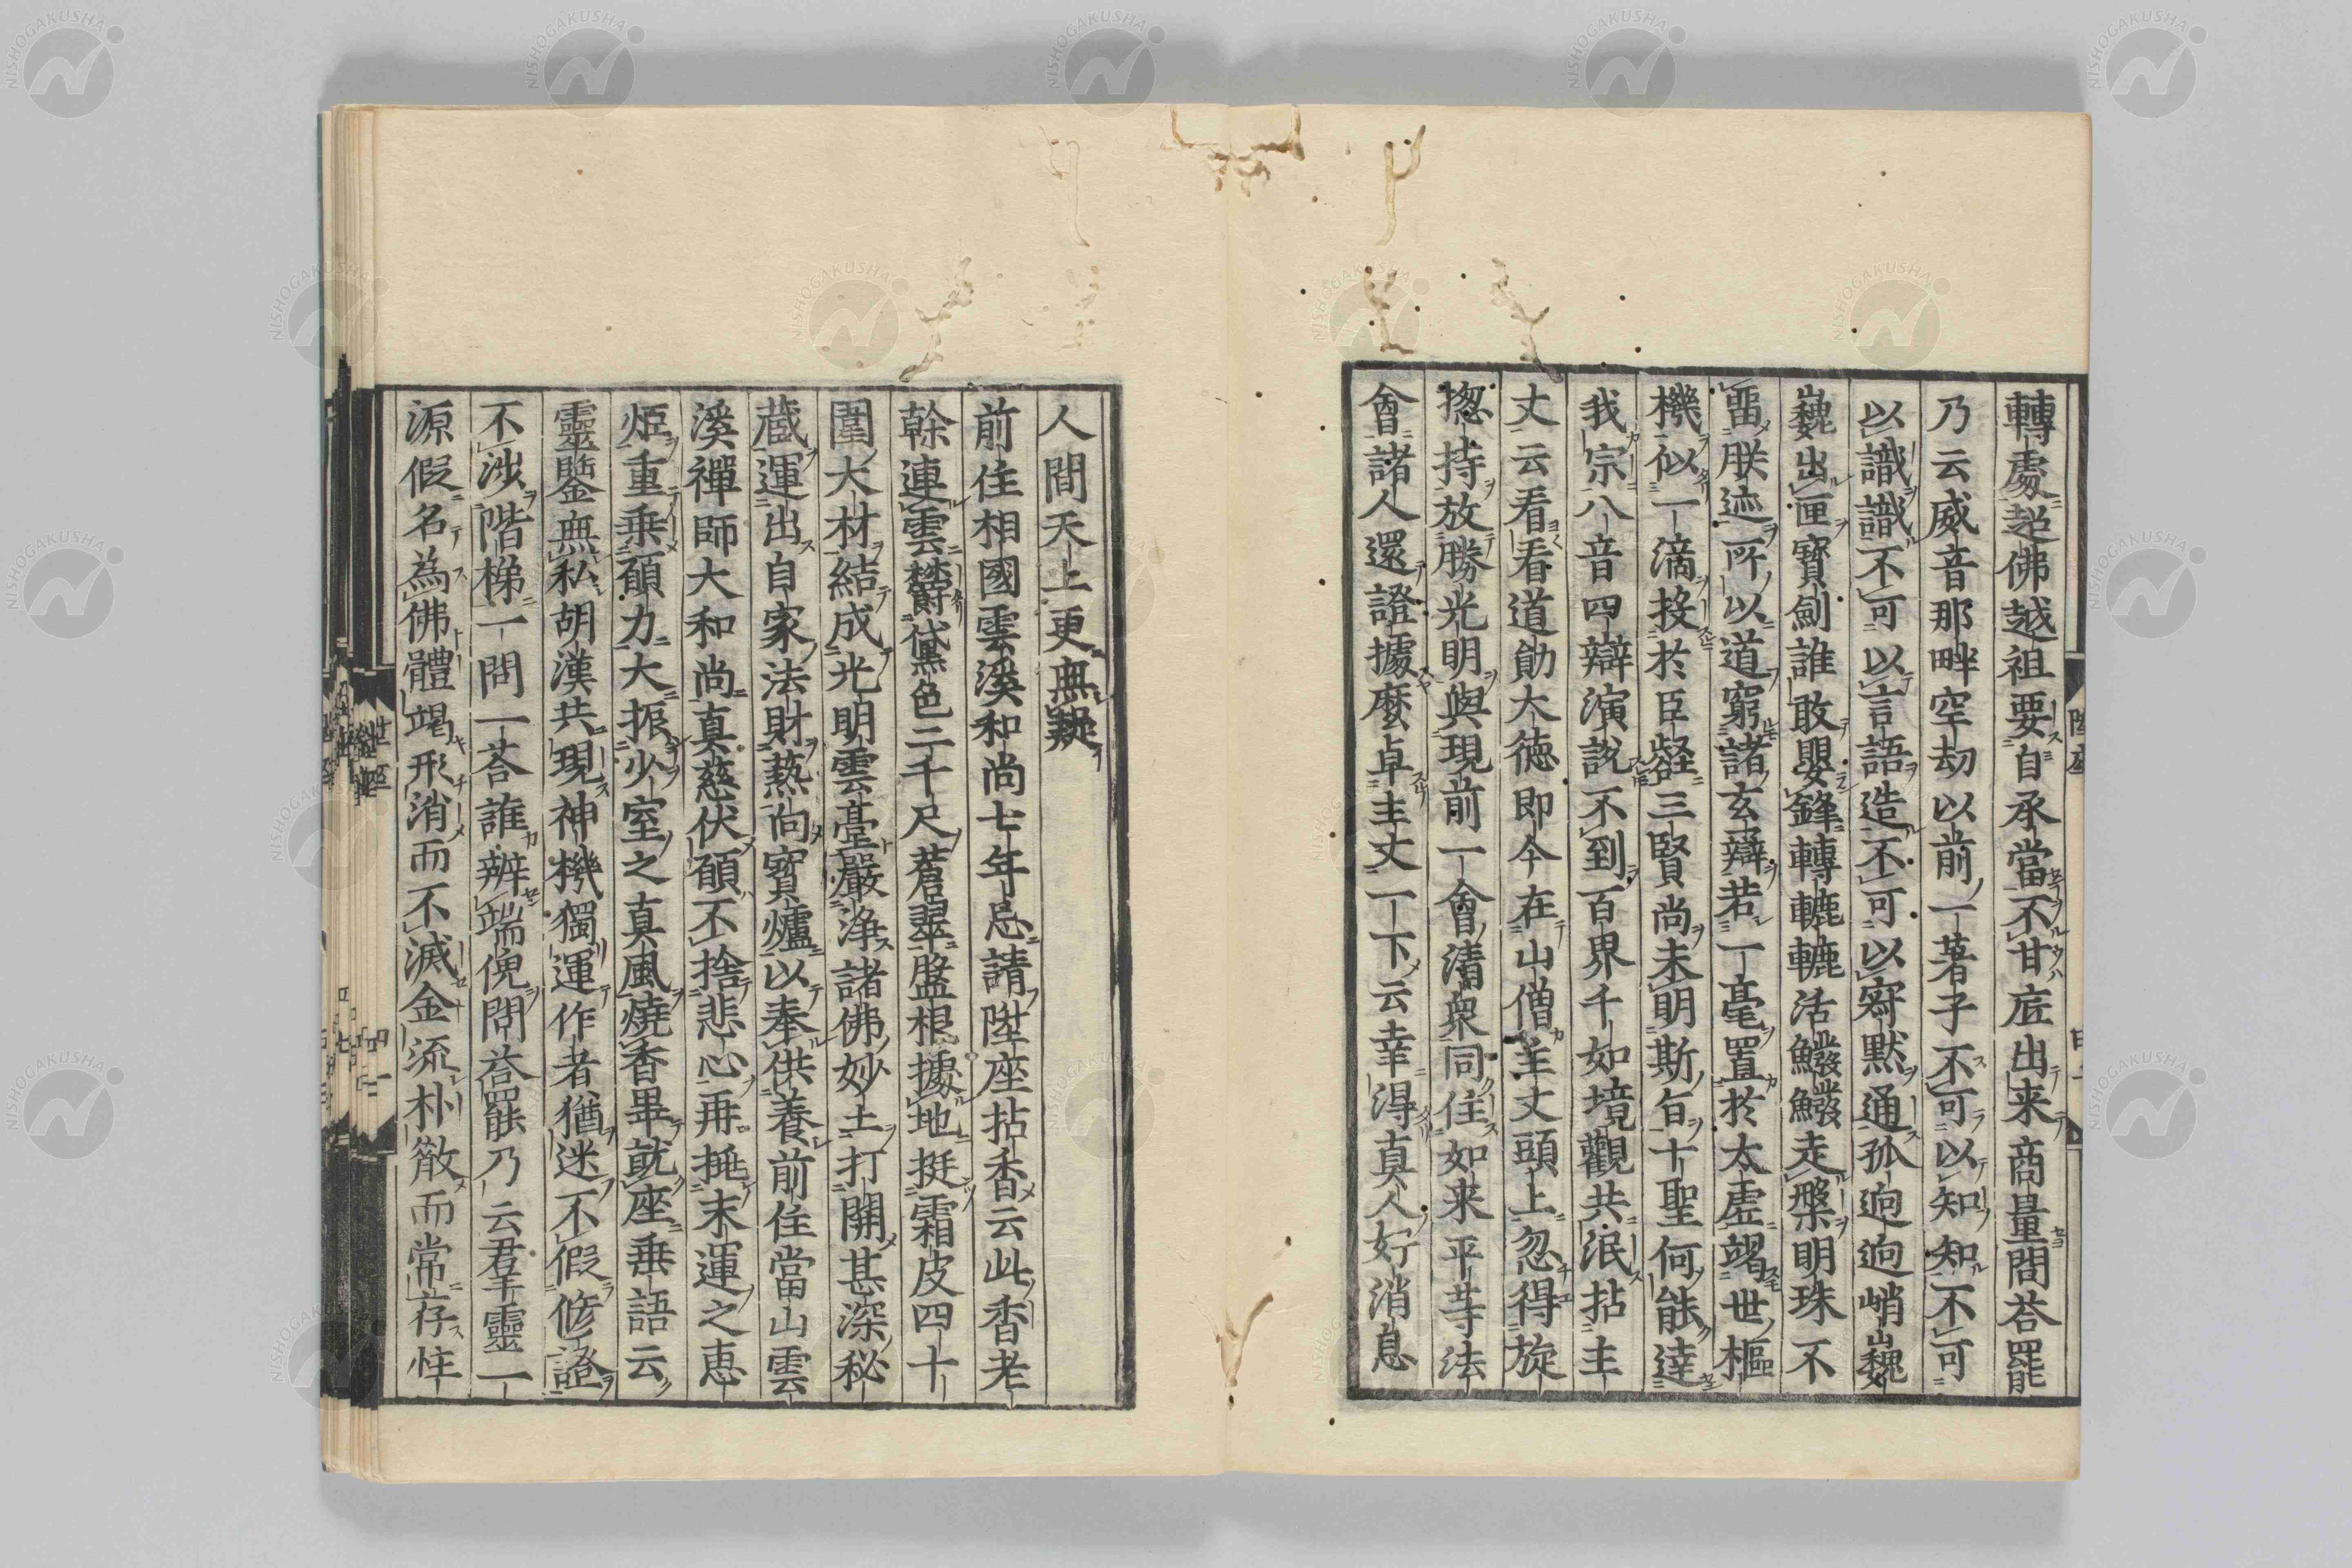 轉處超佛越祖要自承當不甘底出来商量問荅罷
乃云威音那畔空劫以前一著子不可以知知不可
以識識不可以言語造不可以寂默通孤迥迥峭巍
巍出匣寶劍誰敢嬰鋒轉轆轆活鱍鱍走槃明珠不
留朕迹所以道窮諸玄辯若一毫置於太虚竭世樞
機似一滴投於巨壑三賢尚未明斯旨十聖何能達
我宗八音四辯演說不到百界千如境觀共泯拈主
丈云看看道勛大德即今在山僧主丈頭上忽得旋
揔持放勝光明與現前一會清衆同住如来平等法
會諸人還證據麼卓主丈一下云幸得真人好消息
人間天上更無疑
前住相國雲溪和尚七年忌請陞座拈香云此香老
榦連雲欝黛色二千尺蒼翠盤根據地挺霜皮四十
圍大材結成光明雲臺嚴浄諸佛妙土打開甚深秘
蔵運出自家法財爇向寳爐以奉供養前住當山雲
溪禪師大和尚真慈伏願不捨悲心再捶末運之恵
炬重乗願力大振少室之真風燒香畢就座垂語云
靈鑒無私胡漢共現神機獨運作者猶迷不假修證
不涉階梯一問一荅誰辨端倪問荅罷乃云羣靈一
源假名為佛體竭形消而不滅金流朴散而常存性